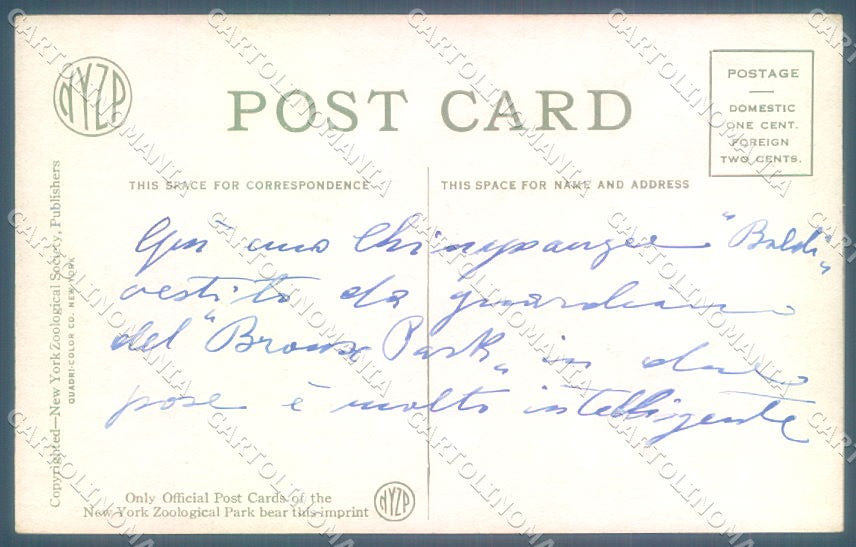 NYZP
POST CARD
POSTAGE
DOMESTIC
ONE CENT.
FOREIGN
TWO CENTS.
THIS SPACE FOR CORRESPONDENCE
THIS SPACE FOR NAME AND ADDRESS
uno Chimpanzee "Baldi"
vestito da guardiano
del "Bronx Park" in due
pose è molto intelligente
Copyrighted—New York Zoological Society, Publishers
QUADRI-COLOR CO. NEW YORK
Only Official Post Cards of the
New York Zoological Park bear this imprint
NYZP
CARTOLINOMANIA